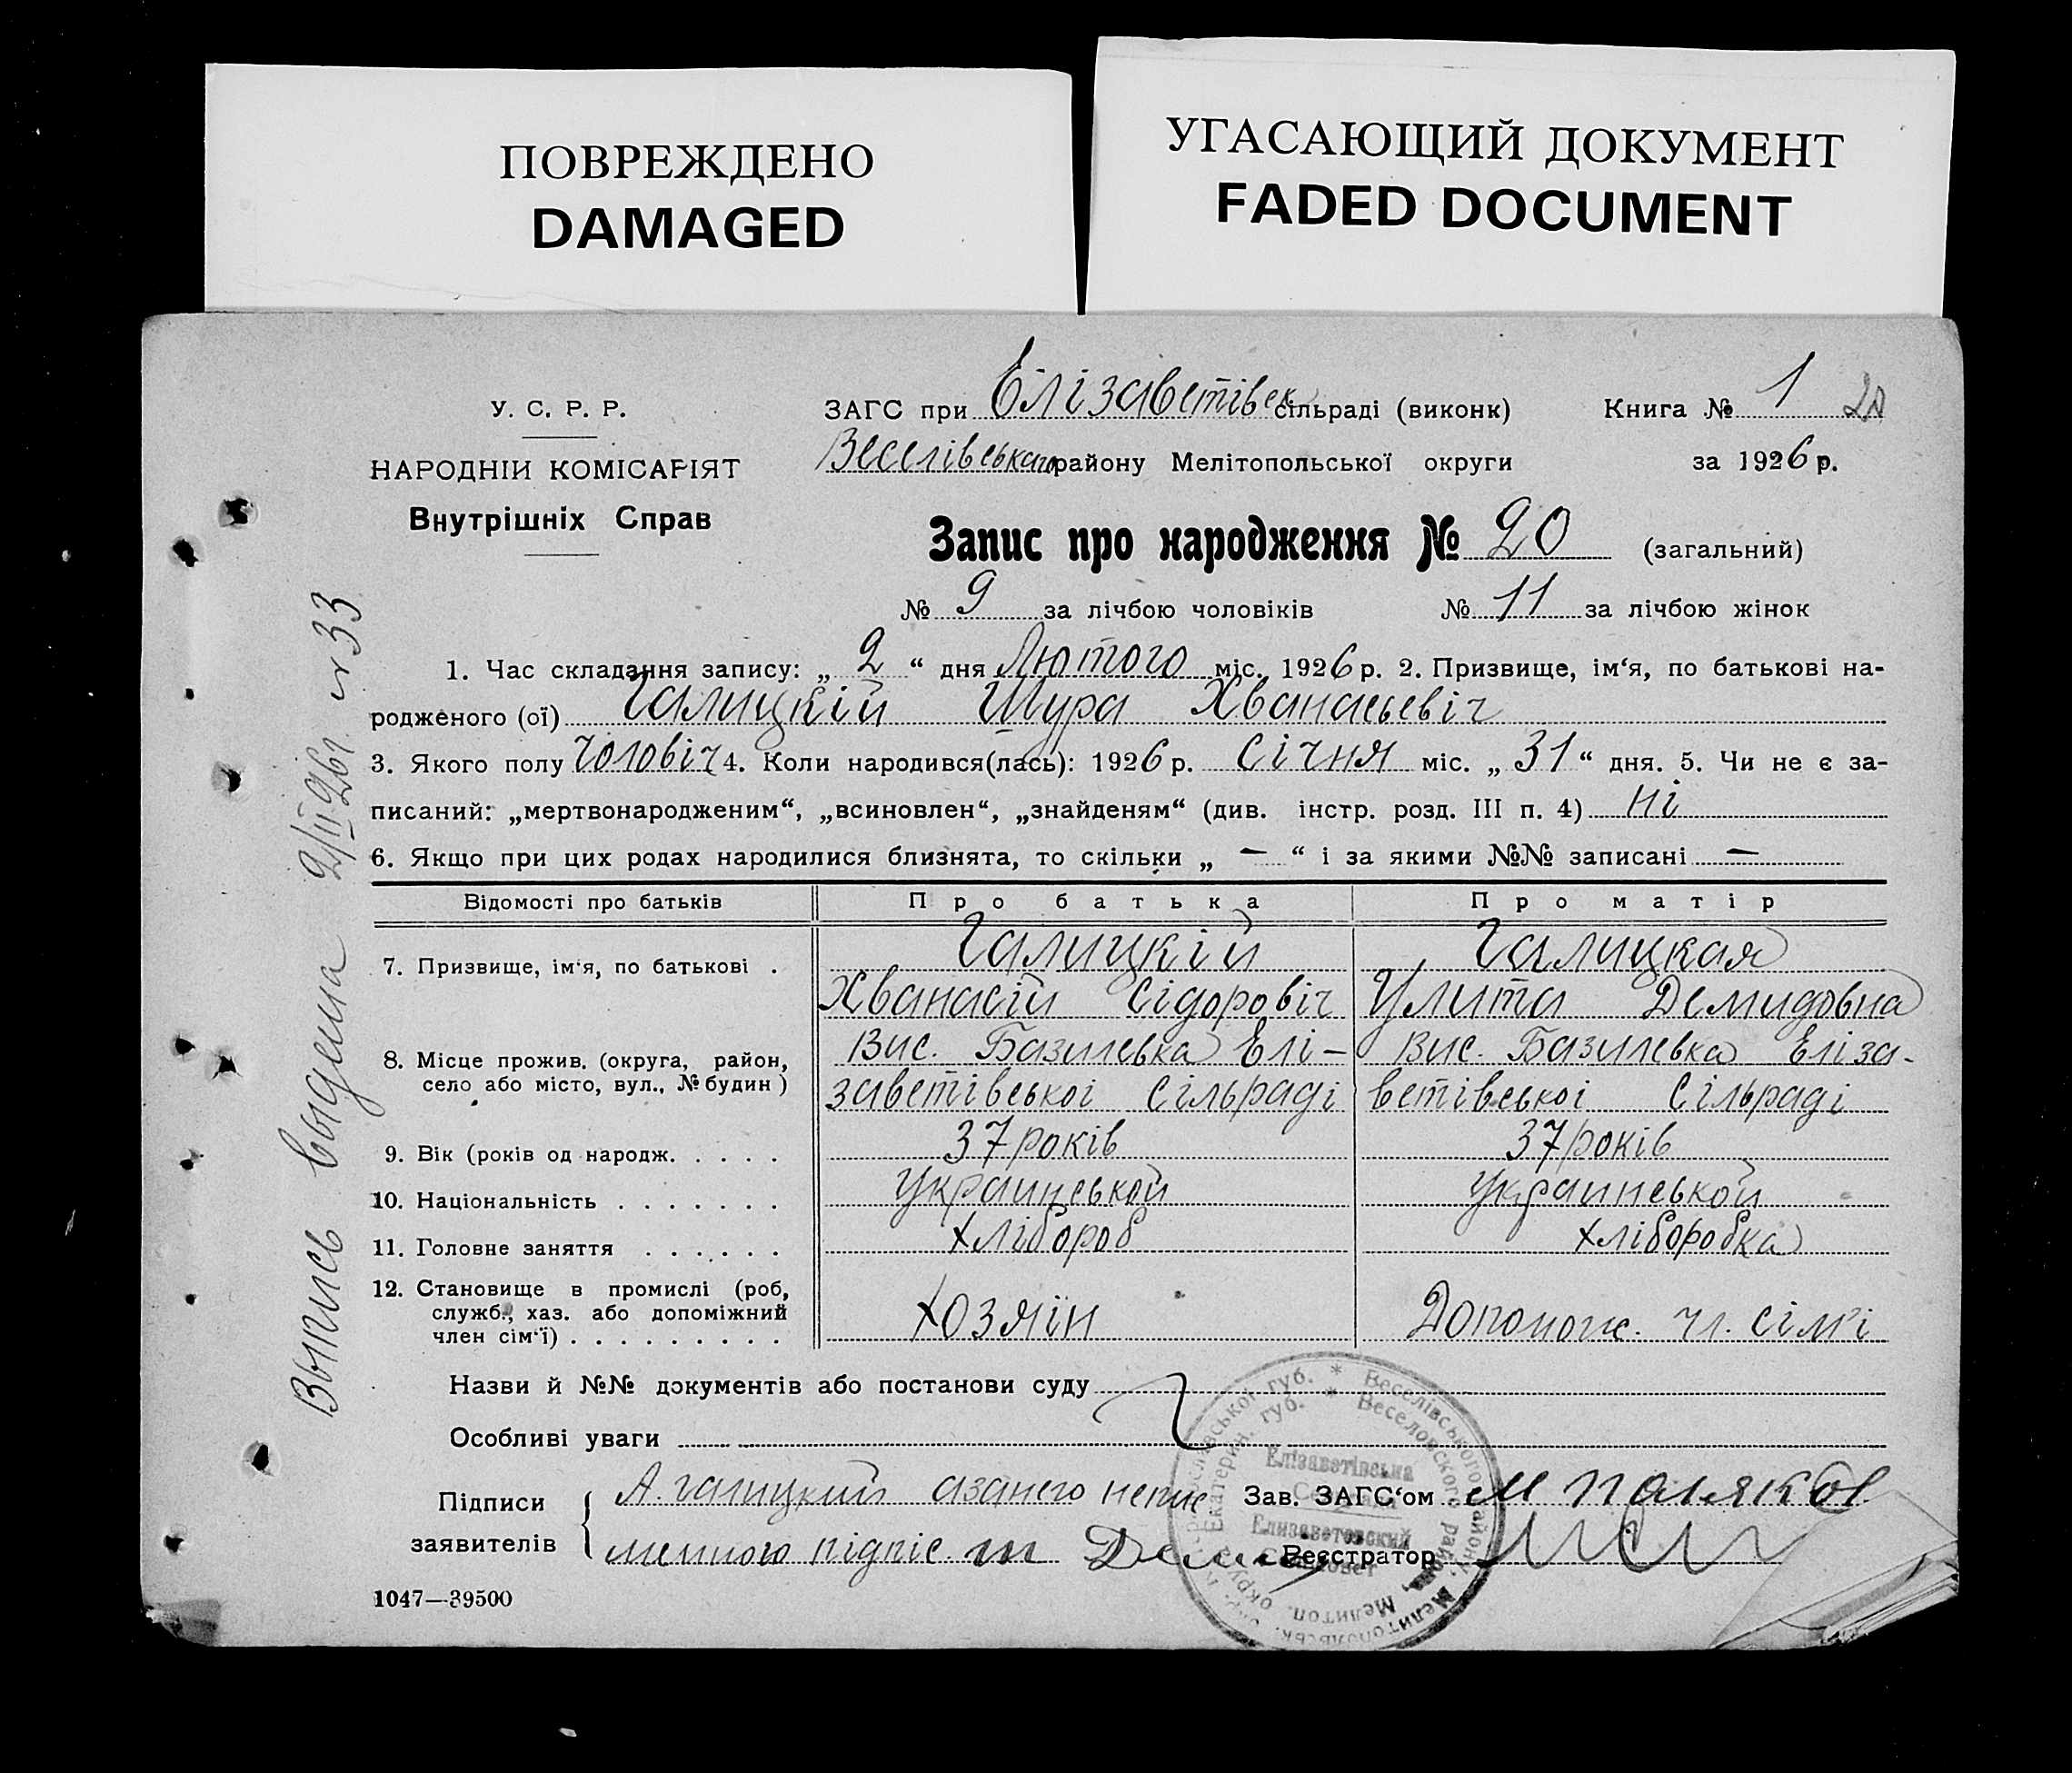 ПОВРЕЖДЕНО
DAMAGED
УГАСАЮЩИЙ ДОКУМЕНТ
FADED DOCUMENT
У. С. Р. Р.
НАРОДНІЙ КОМІСАРІЯТ
Внутрішніх Справ
ЗАГС при Єлізаветівск сільраді (виконк)
Книга № 1 20
Веселівськаго району Мелітопольської округи
за 1926 р.
Запис про народження № 20 (загальний)
№ 9 за лічбою чоловіків № 11 за лічбою жінок
1. Час складання запису: „ 2 “ дня Лютого міс. 1926 р. 2. Призвище, ім‘я, по батькові на-
родженого (ої) Галицкій Шура Хванасьевіч
3. Якого полу чоловіч 4. Коли народився(лась): 1926 р. Січня міс. „ 31 “ дня. 5. Чи не є за-
писаний: „мертвонародженим“, „всиновлен“, „знайденям“ (див. інстр. розд. III п. 4) ні
6. Якщо при цих родах народилися близнята, то скільки „ — “ і за якими №№ записані —
Відомості про батьків Про батька Про матір
7. Призвище, ім‘я, по батькові . Галицкій Галицкая
Хванасій Сідоровіч Улита Демидовна
8. Місце прожив. (округа, район, село або місто, вул., № будин )
Вис. Базилевка Елі- Вис. Базилевка Еліза-
заветівської Сільраді ветівської Сільраді
9. Вік (років од народж. . . . . 37 років 37 років
10. Національність . . . . . . . Украинськой Украинськой
11. Головне заняття . . . . . . Хлібороб Хліборобка
12. Становище в промислі (роб, служб., хаз. або допоміжний член сім‘ї) . . . . . . . . . Хозяїн Допомож. чл. сім'і
Назви й №№ документів або постанови суду
Особливі уваги
Підписи заявителів
А. Галицкий азанего непис
менного підпіс.
Зав. ЗАГС‘ом М Поляков
Реєстратор
1047—39500
Выпись выдена 2/II 26 г. № 33
* Веселівського району, Мелитопольськ.
губ. * Веселовского района, Мелитоп. округ
Екатерин. губ.
Елізаветівська
Елизаветовский